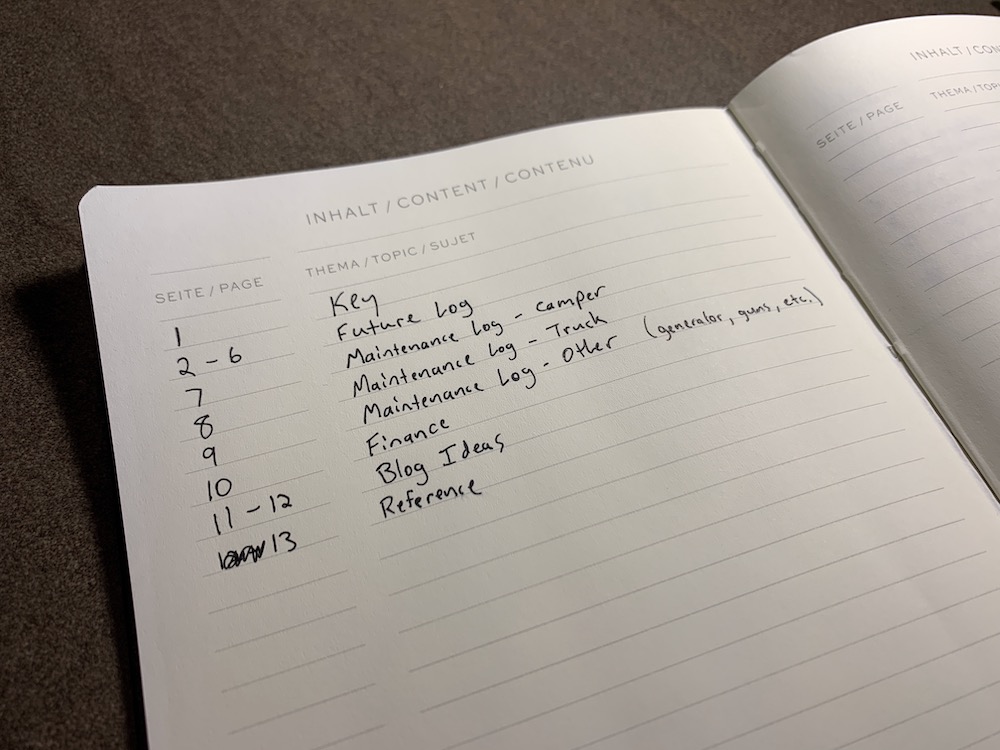 INHALT / CONTENT / CONTENU
SEITE / PAGE THEMA / TOPIC / SUJET
1 Key
2 - 6 Future Log
7 Maintenance Log - camper
8 Maintenance Log - Truck
9 Maintenance Log - Other (generator, guns, etc.)
10 Finance
11 - 12 Blog Ideas
13 Reference
INHALT / CON
SEITE / PAGE THEMA / TOPI